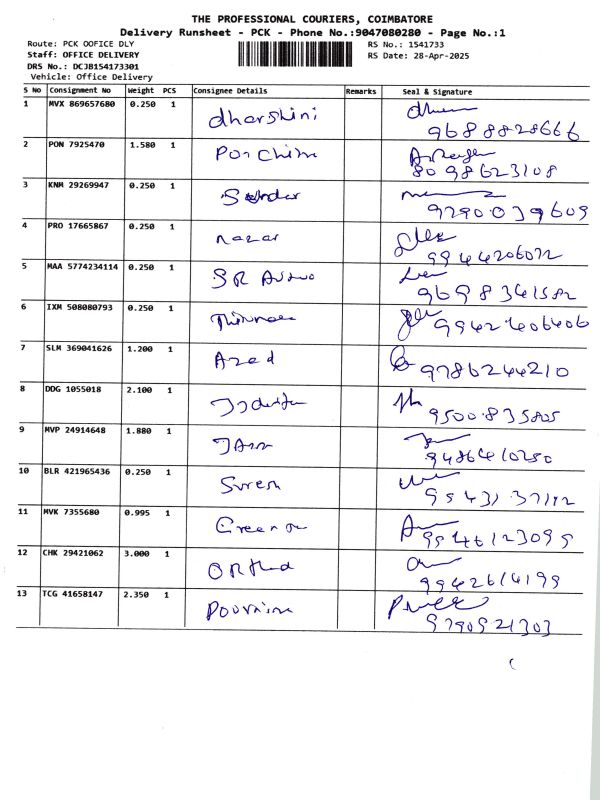 THE PROFESSIONAL COURIERS, COIMBATORE
Delivery Runsheet - PCK - Phone No.:9047080280 - Page No.:1
Route: PCK OOFICE DLY
RS No.: 1541733
Staff: OFFICE DELIVERY
RS Date: 28-Apr-2025
DRS No.: DCJB154173301
Vehicle: Office Delivery
S No Consignment No Weight PCS Consignee Details Remarks Seal & Signature
1 MVX 869657680 0.250 1 dharshini
9688828666
2 PON 7925470 1.580 1
8098623108
3 KNM 29269947 0.250 1
9290039609
4 PRO 17665867 0.250 1 nazar
9944206072
5 MAA 5774234114 0.250 1 SR
9698341582
6 IXM 508080793 0.250 1
9942406406
7 SLM 369041626 1.200 1 Azad
9786244210
8 DDG 1055018 2.100 1
9500835805
9 MVP 24914648 1.880 1
9486410280
10 BLR 421965436 0.250 1 Suresh
11 MVK 7355680 0.995 1
9546123099
12 CHK 29421062 3.000 1
9942614199
13 TCG 41658147 2.350 1
9790921303